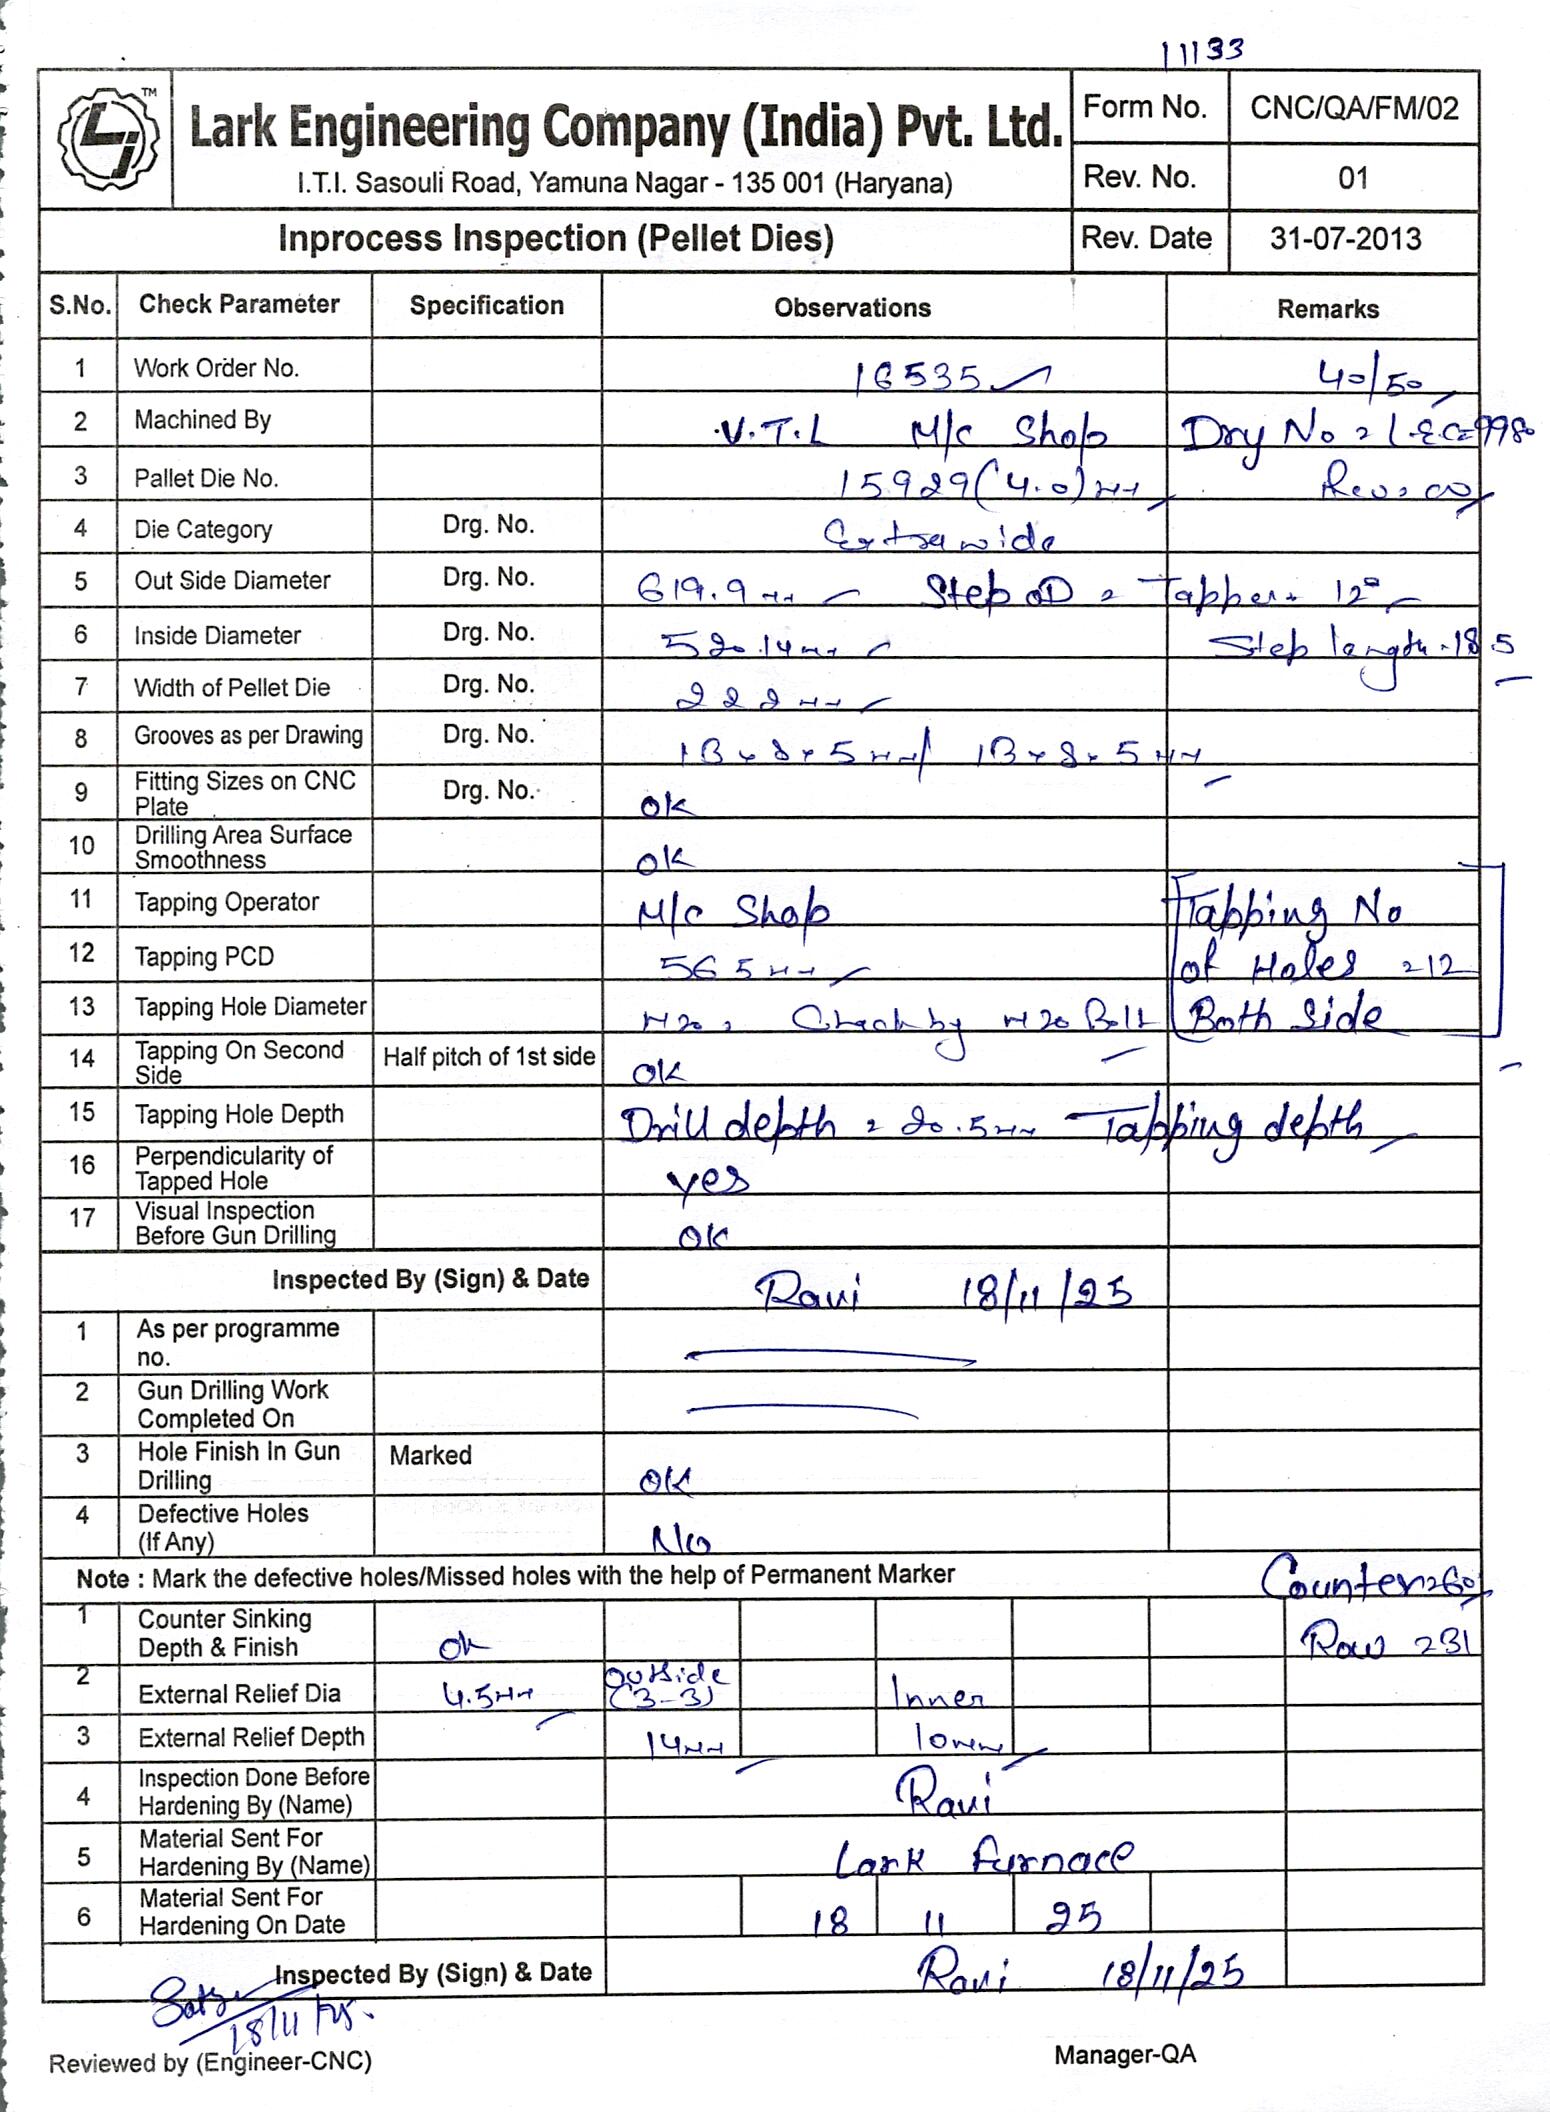 11133
TM
Lark Engineering Company (India) Pvt. Ltd.
I.T.I. Sasouli Road, Yamuna Nagar - 135 001 (Haryana)
Form No. CNC/QA/FM/02
Rev. No. 01
Inprocess Inspection (Pellet Dies) Rev. Date 31-07-2013
S.No. Check Parameter Specification Observations Remarks
1 Work Order No. 16535 40/50
2 Machined By V.T.L M/c Shop Drg No = L.E.C=998
3 Pallet Die No. 15929(4.0)mm Rev = 00
4 Die Category Drg. No. Extra wide
5 Out Side Diameter Drg. No. 619.9mm Step OD = Tapper 12°
6 Inside Diameter Drg. No. 520.14mm Step length 18.5
7 Width of Pellet Die Drg. No. 222mm
8 Grooves as per Drawing Drg. No. 13x8x5mm/ 13x8x5mm
9 Fitting Sizes on CNC Plate Drg. No. OK
10 Drilling Area Surface Smoothness OK
11 Tapping Operator M/c Shop Tapping No
12 Tapping PCD 565mm of Holes =12
13 Tapping Hole Diameter M20 = Check by M20 Bolt Both Side
14 Tapping On Second Side Half pitch of 1st side OK
15 Tapping Hole Depth Drill depth = 20.5mm Tapping depth
16 Perpendicularity of Tapped Hole yes
17 Visual Inspection Before Gun Drilling OK
Inspected By (Sign) & Date Ravi 18/11/25
1 As per programme no.
2 Gun Drilling Work Completed On
3 Hole Finish In Gun Drilling Marked OK
4 Defective Holes (If Any) No
Note : Mark the defective holes/Missed holes with the help of Permanent Marker Counter=60
1 Counter Sinking Depth & Finish Ok Row =31
2 External Relief Dia 4.5mm Outside (3-3) Inner
3 External Relief Depth 14mm 10mm
4 Inspection Done Before Hardening By (Name) Ravi
5 Material Sent For Hardening By (Name) Lark Furnace
6 Material Sent For Hardening On Date 18 11 25
Inspected By (Sign) & Date Ravi 18/11/25
18/11/25.
Reviewed by (Engineer-CNC) Manager-QA